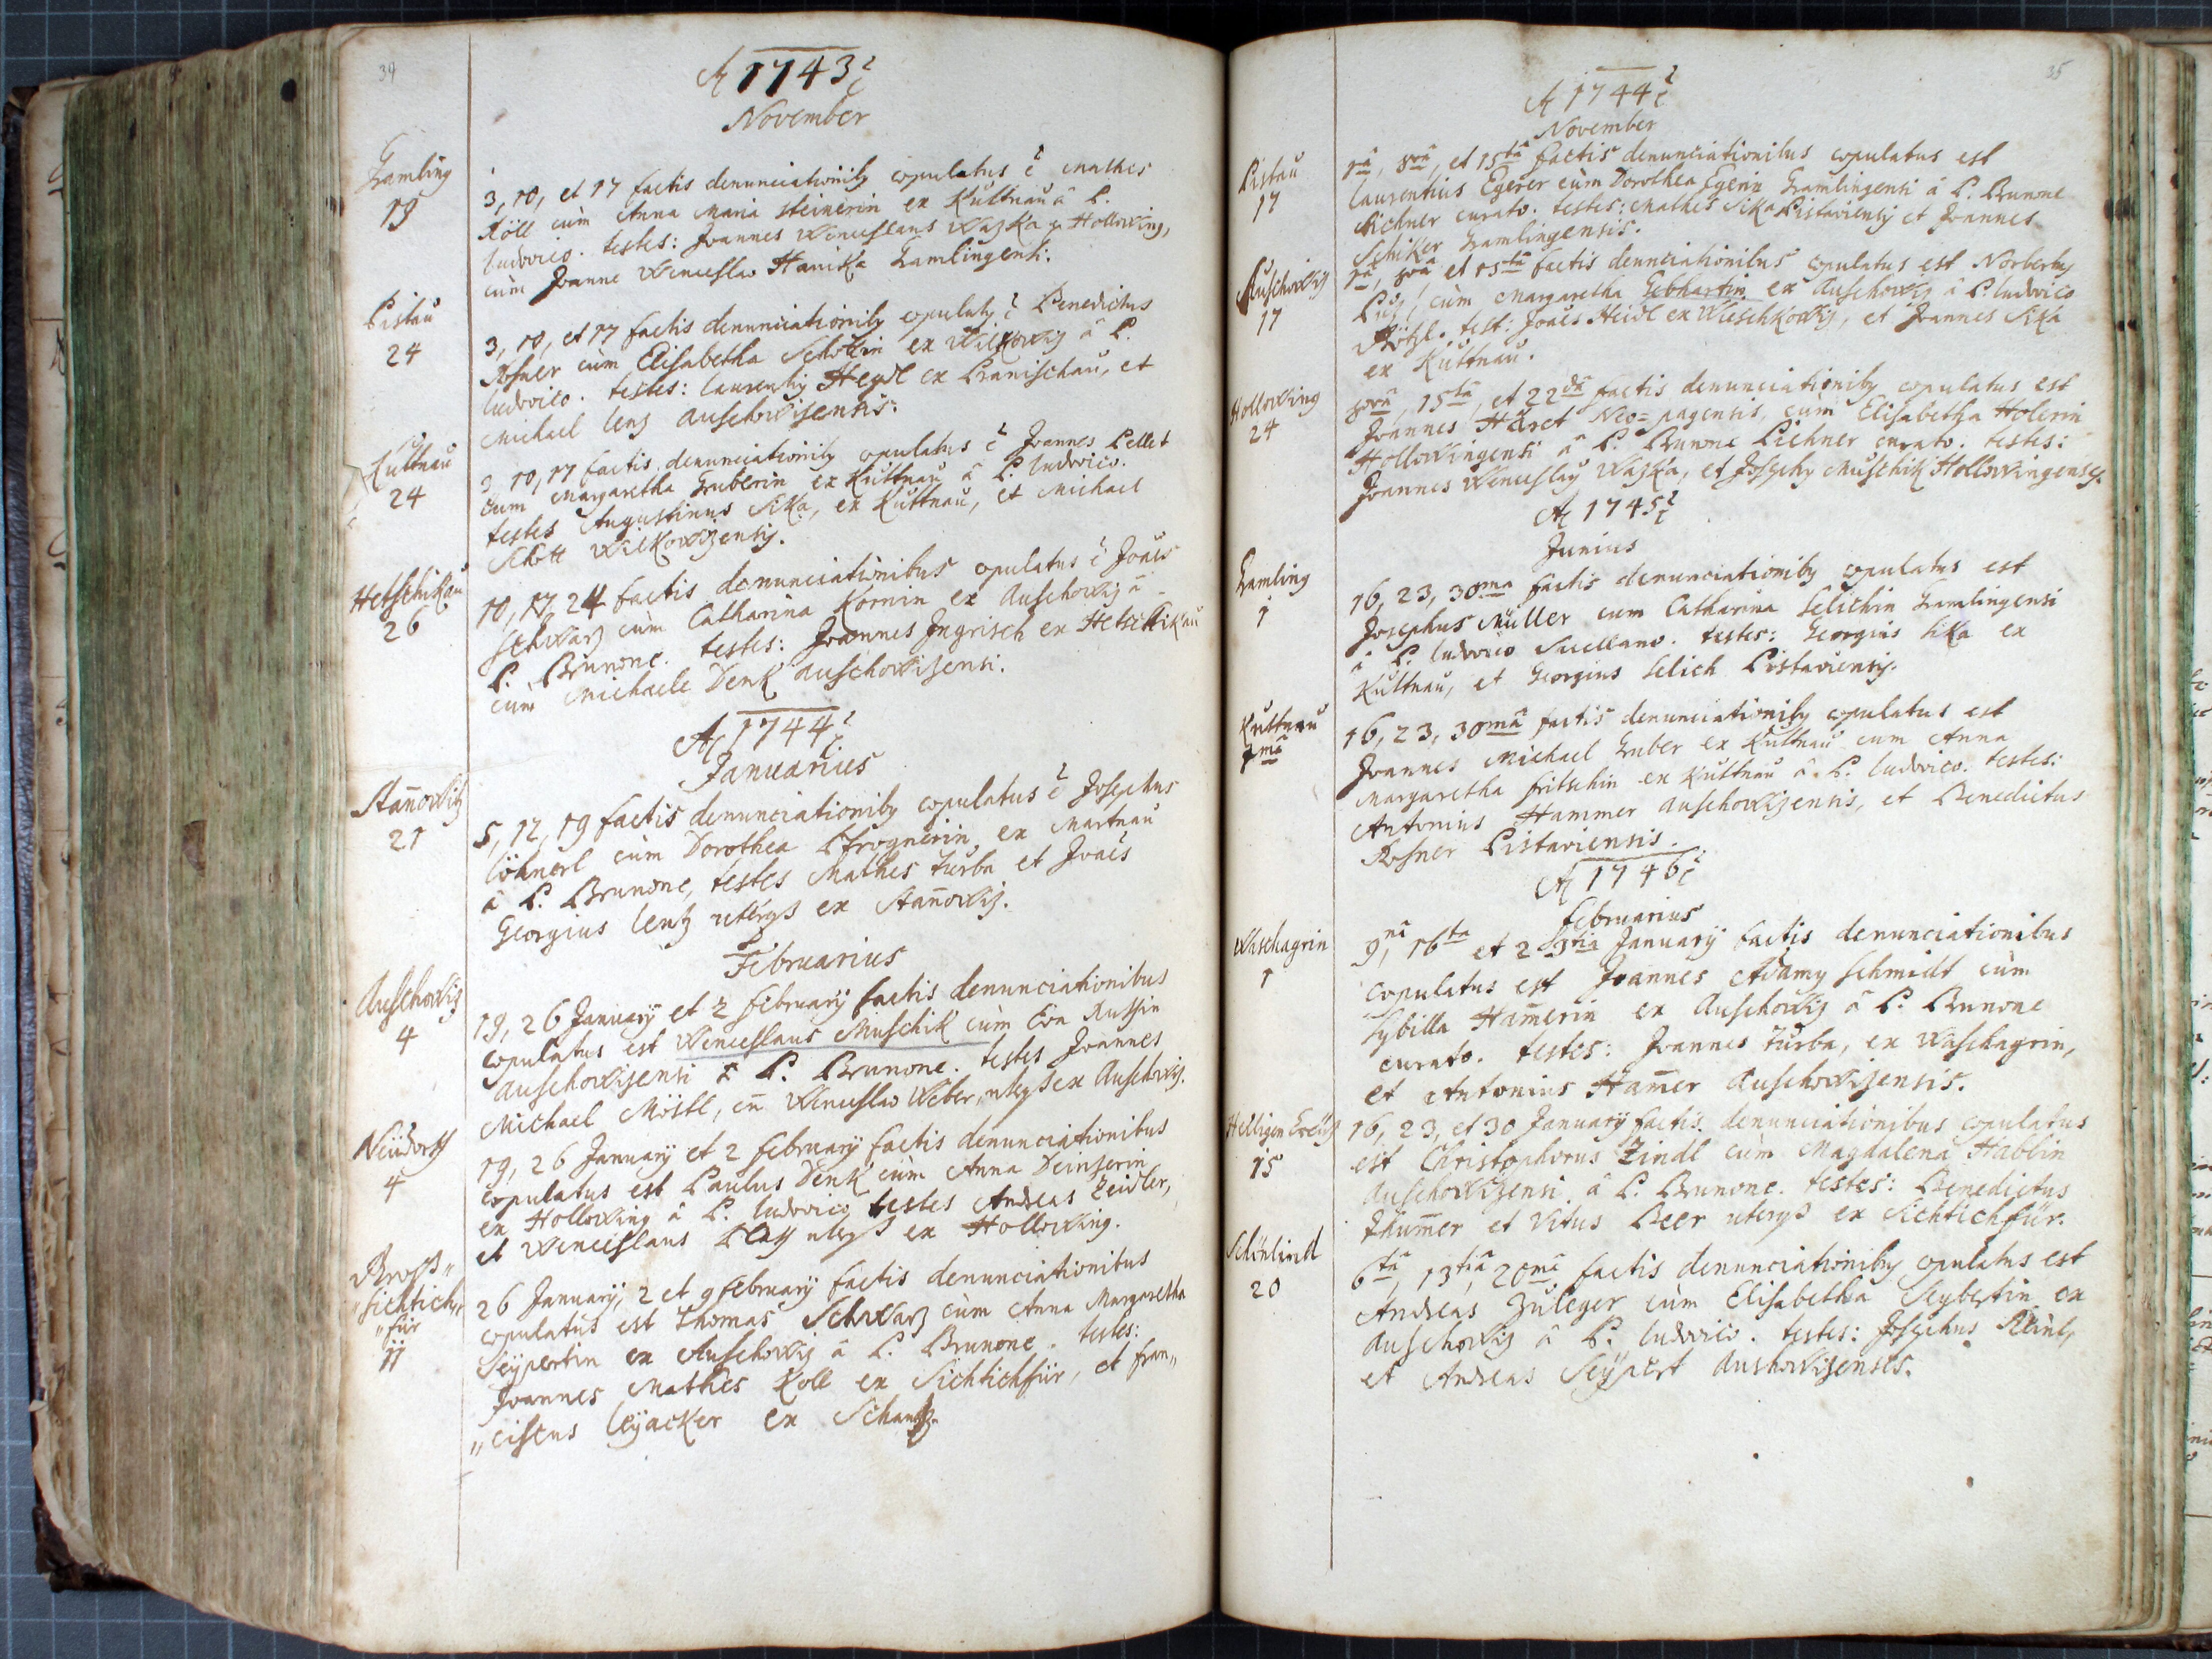 34
A 1743
November
Gramling
19
3, 10, et 17 factis denunciationib9 copulatus ē Mathes
Köll cum Anna Maria Steinerin ex Kuttnau â P.
ludovico. testes: Joannes Wenceslaus Wazka ex Hollowing,
cùm Joanne Wenceslao Hanika Gramlingensi.
Pistau
24
3, 10, et 17 factis denunciationib9 copulat9 ē Benedictus
Rosner cùm Elisabetha Schottin ex Wilkowiz â P.
ludovico. testes: laurenti9 Heydl ex Pranischau, et
Michael lenz Auschowizensis.
Kuttnau
24
3, 10, 17 factis denunciationib9 copulatus ē Joannes Pellet
cum Margaretha Gruberin ex Kuttnau â P. ludovico.
testes Augustinus Sika, ex Kuttnau, et Michael
Schott Wilkowizensis.
Hetschikau
26
10, 17, 24 factis denunciationibus copulatus ē Joaēs
Schwarz cùm Catharina Kornin ex Auschowiz â
P. Brunone. testes: Joannes Ingrisch ex Hetschikau
cùm Michaele Denk Auschowizensi.
A 1744
Januarius
Stañowitz
21
5, 12, 19 factis denunciationib9 copulatus ē Josephus
löhnerl cùm Dorothea Pfrognerin ex Martnau
â P. Brunone, testes Mathes Turba et Joaēs
Georgius lentz ex Stañowiz.
Februarius
Auschowiz
4
19, 26 Januarÿ et 2 februarÿ factis denunciationibus
copulatus est Wenceslaus Muschik cùm Eva
Auschowizensi â P. Brunone. testes Joannes
Michael Möstl, cū Wenceslao Weber, ex Auschowiz.
Neüdorff
4
19, 26 Januarÿ et 2 februarÿ factis denunciationibus
copulatus est Paulus Denk cùm Anna Deinzerin
ex Hollowing â P. ludovico testes Andreas Zeidler,
et Wenceslaus ex Hollowing.
Gross„
„sichtich„
„für
11
26 Januarÿ, 2 et 9 februarÿ factis denunciationibus
copulatus est Thomas Schwarz cùm Anna Margaretha
Seÿpertin ex Auschowiz â P. Brunone. testes:
Joannes Mathes Koll ex Sichtichfür, et fran„
„ciscus leÿacker ex Schantz.
35
A 1744
November
Pistau
17
1â, 8vâ, et 15tâ factis denunciationibus copulatus est
laurentius Egerer cùm Dorothea Egerin Gramlingensi â P. Brunone
Pichner curato. testes: Mathes Sika Pistaviensis et Joannes
Schiker Gramlingensis.
Auschowiz
17
1â, 8vâ et 15tâ factis denunciationibus copulatus est Norbert9
cùm Margaretha Gebhartin ex Auschowiz â P. ludovico
test: Joaēs Heidl ex Wieschkowiz, et Joannes Sika
ex Kuttnau.
Hollowing
24
8vâ, 15tâ, et 22dâ factis denunciationib9 copulatus est
Joannes Häret Neo=pagensis, cùm Elisabetha Holerin
Hollowingensi â P. Brunone Pichner curato. testes:
Joannes Wenceslaus Wazka, et Joseph9 Muschik Hollowingenses.
A 1745
Junius
Gramling
1
16, 23, 30ma factis denunciationib9 copulatus est
Josephus Müller cum Catharina Selichin Gramlingensi
â P. ludovico Sacellano. testes: Georgius Sika ex
Kuttnau, et Georgius Selich Pistaviensis.
Kuttnau
7mâ
16, 23, 30mâ factis denunciationib9 copulatus est
Joannes Michael Gruber ex Kuttnau cum Anna
Margaretha fritschin ex Kuttnau â P. ludovico. testes:
Antonius Hammer Auschowizensis, et Benedictus
Rosner Pistaviensis.
A 1746
februarius
Waschagrin
1
9nâ, 16ta et 23tia Januarÿ factis denunciationibus
copulatus est Joannes Adamus Schmidt cùm
Sybilla Hamerin ex Auschowiz â P. Brunone
curato. testes: Joannes Turba, ex Waschagrin,
et Antonius Hamer Auschowizensis.
Heiligen Creütz
15
16, 23, et 30 Januarÿ factis denunciationibus copulatus
est Christophorus Zindl cùm Magdalena Hablin
Auschowizensi â P. Brunone. testes: Benedictus
Thumer et Vitus Beer ex Sichtichfür.
Schönlind
20
6tâ, 13tiâ, 20mâ factis denunciationib9 copulatus est
Andreas Züleger cùm Elisabetha Seybertin ex
Auschowiz â P. ludovico. testes: Josephus
et Andreas Seÿpert Aushowizenses.